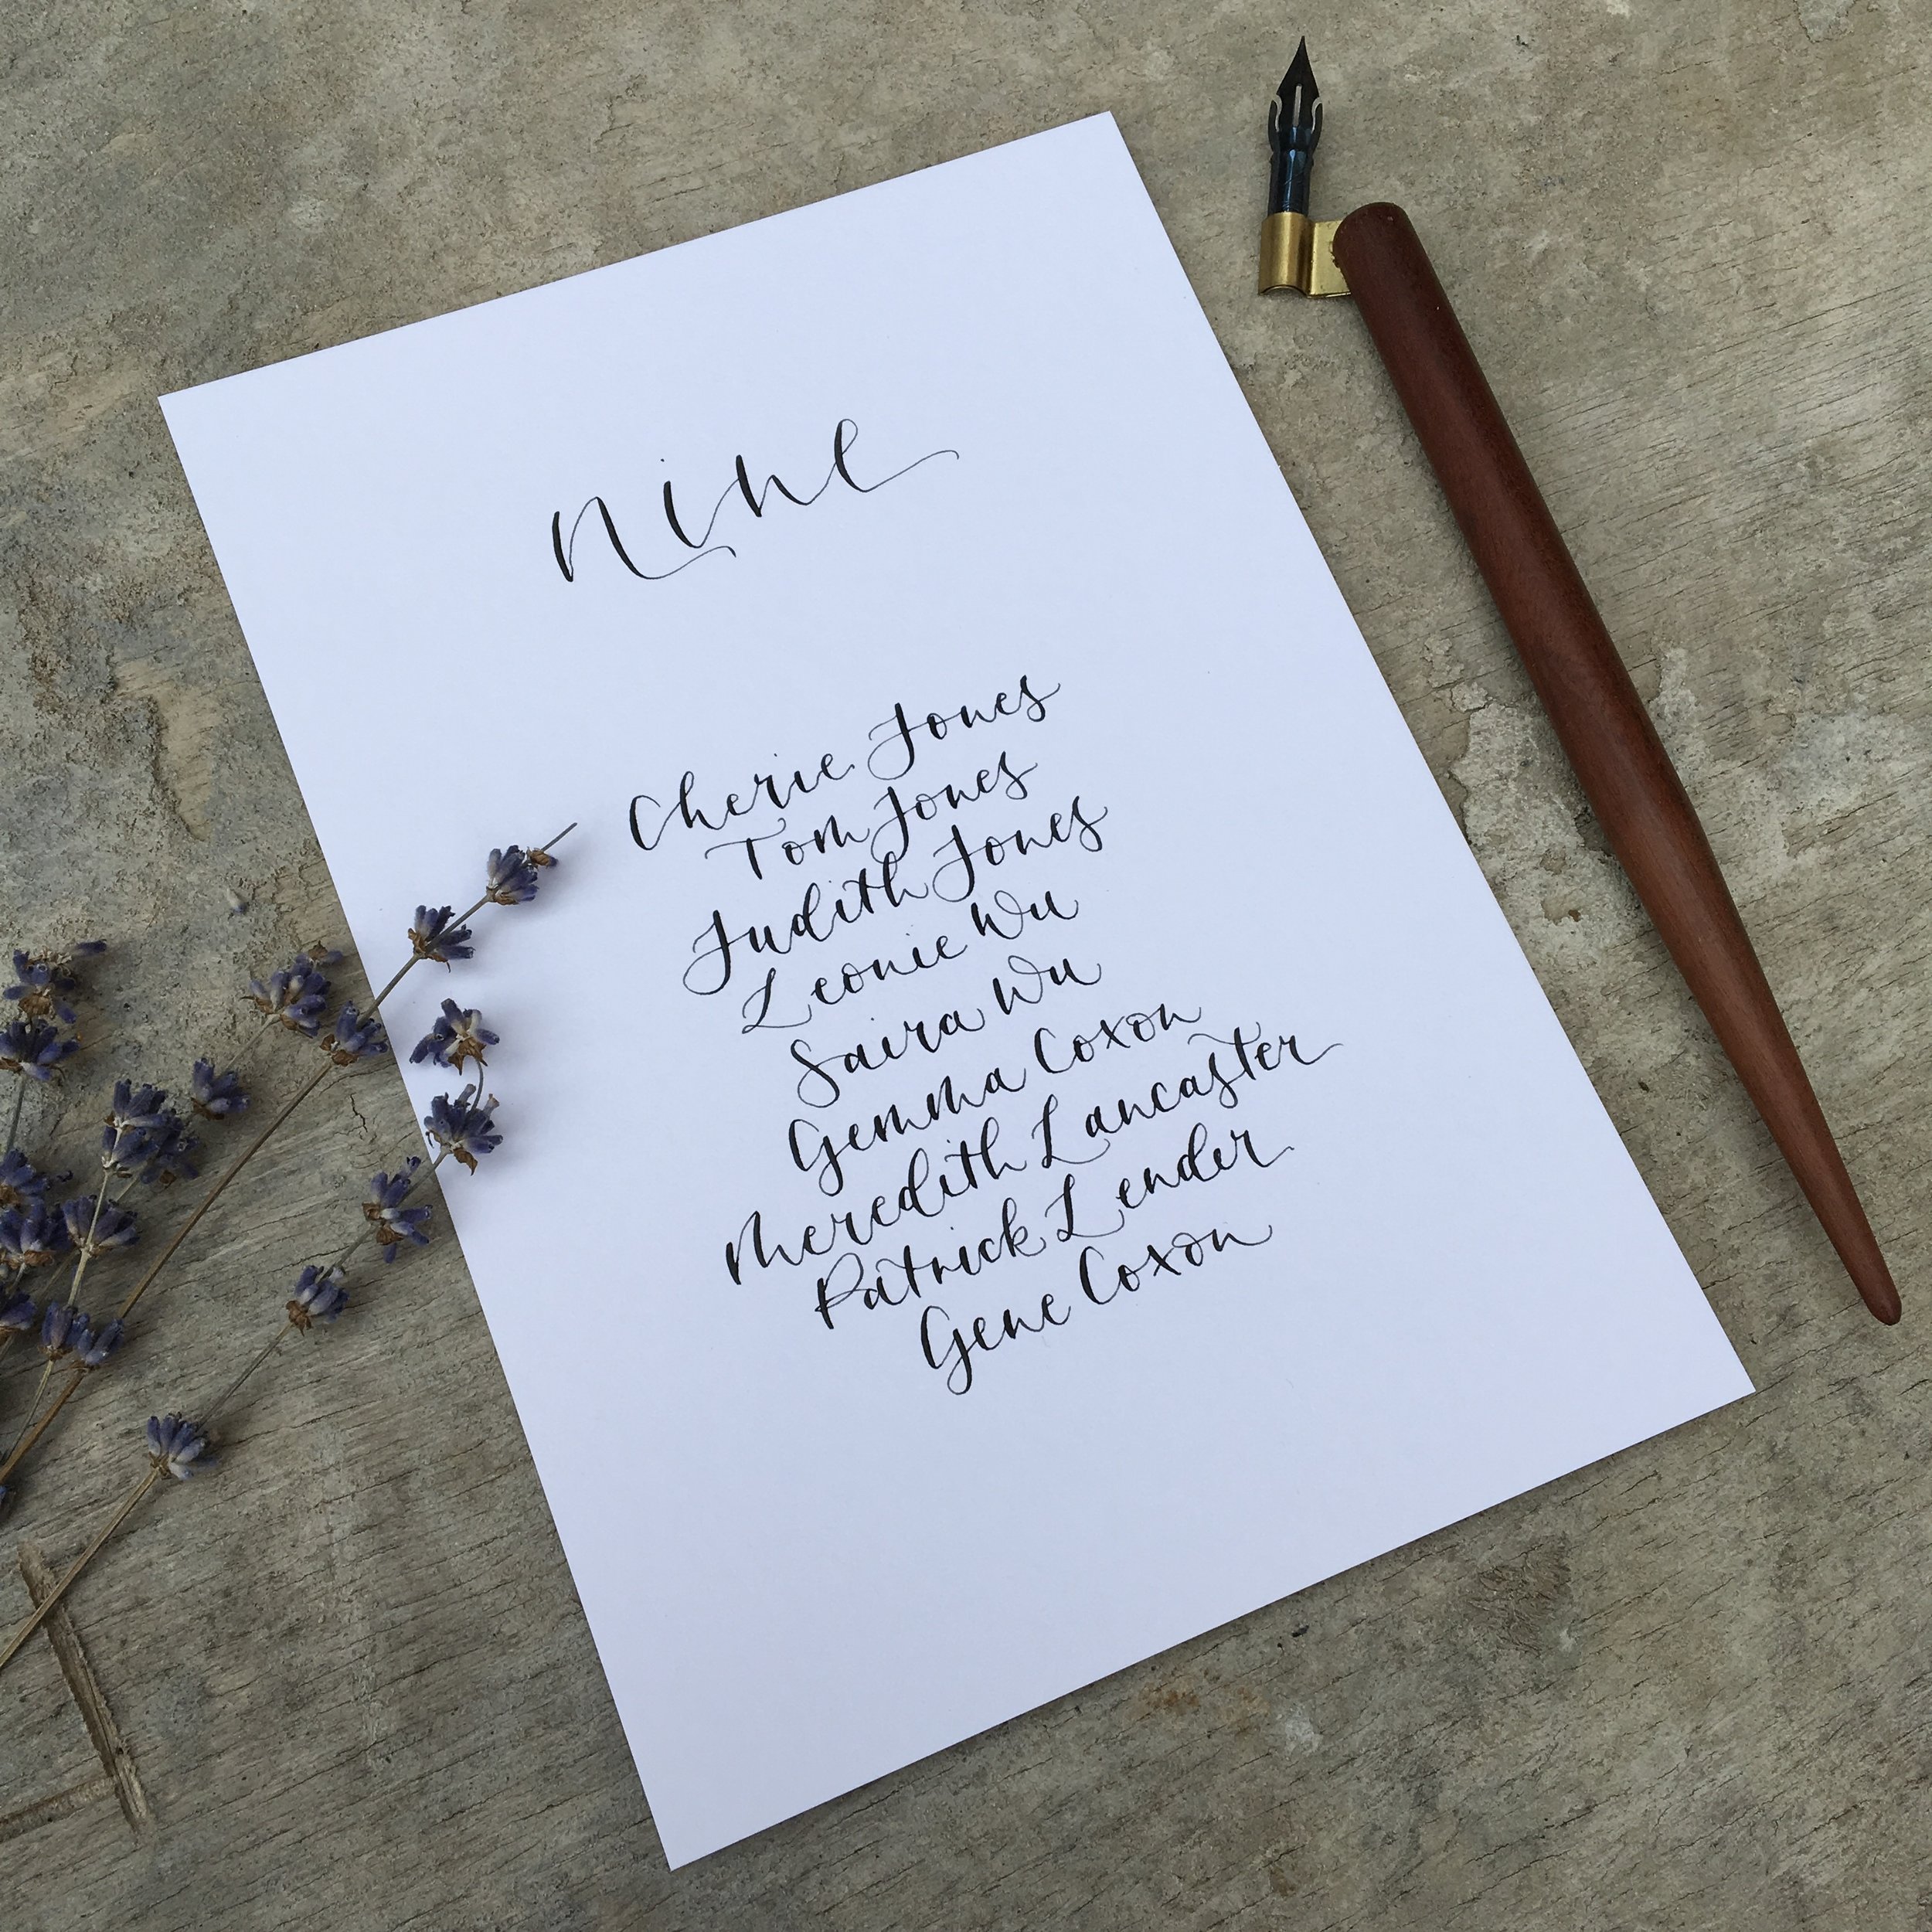 nine
Cherie Jones
Tom Jones
Judith Jones
Leonie Wu
Saira Wu
Gemma Coxon
Meredith Lancaster
Patrick Lender
Gene Coxon